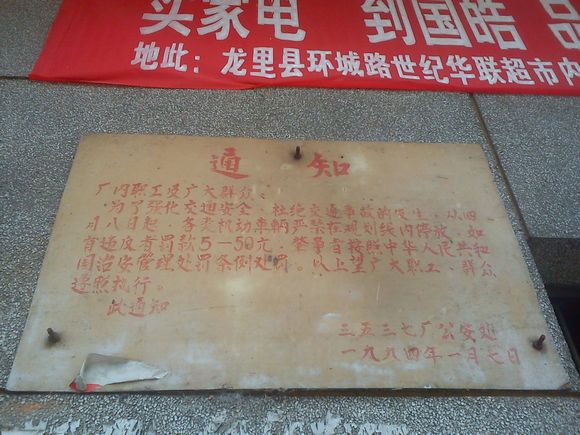 买家电 到国皓 品
地此：龙里县环城路世纪华联超市内
通 知
厂内职工及广大群众、
为了强化交通安全、杜绝交通事故的发生，从四
月八日起，各类机动车辆严禁在规划线内停放，如
有违反者罚款5—50元，肇事者按照中华人民共和
国治安管理处罚条例处罚。以上望广大职工、群众
遵照执行。
此通知
三五三七厂公安处
一九九四年一月七日